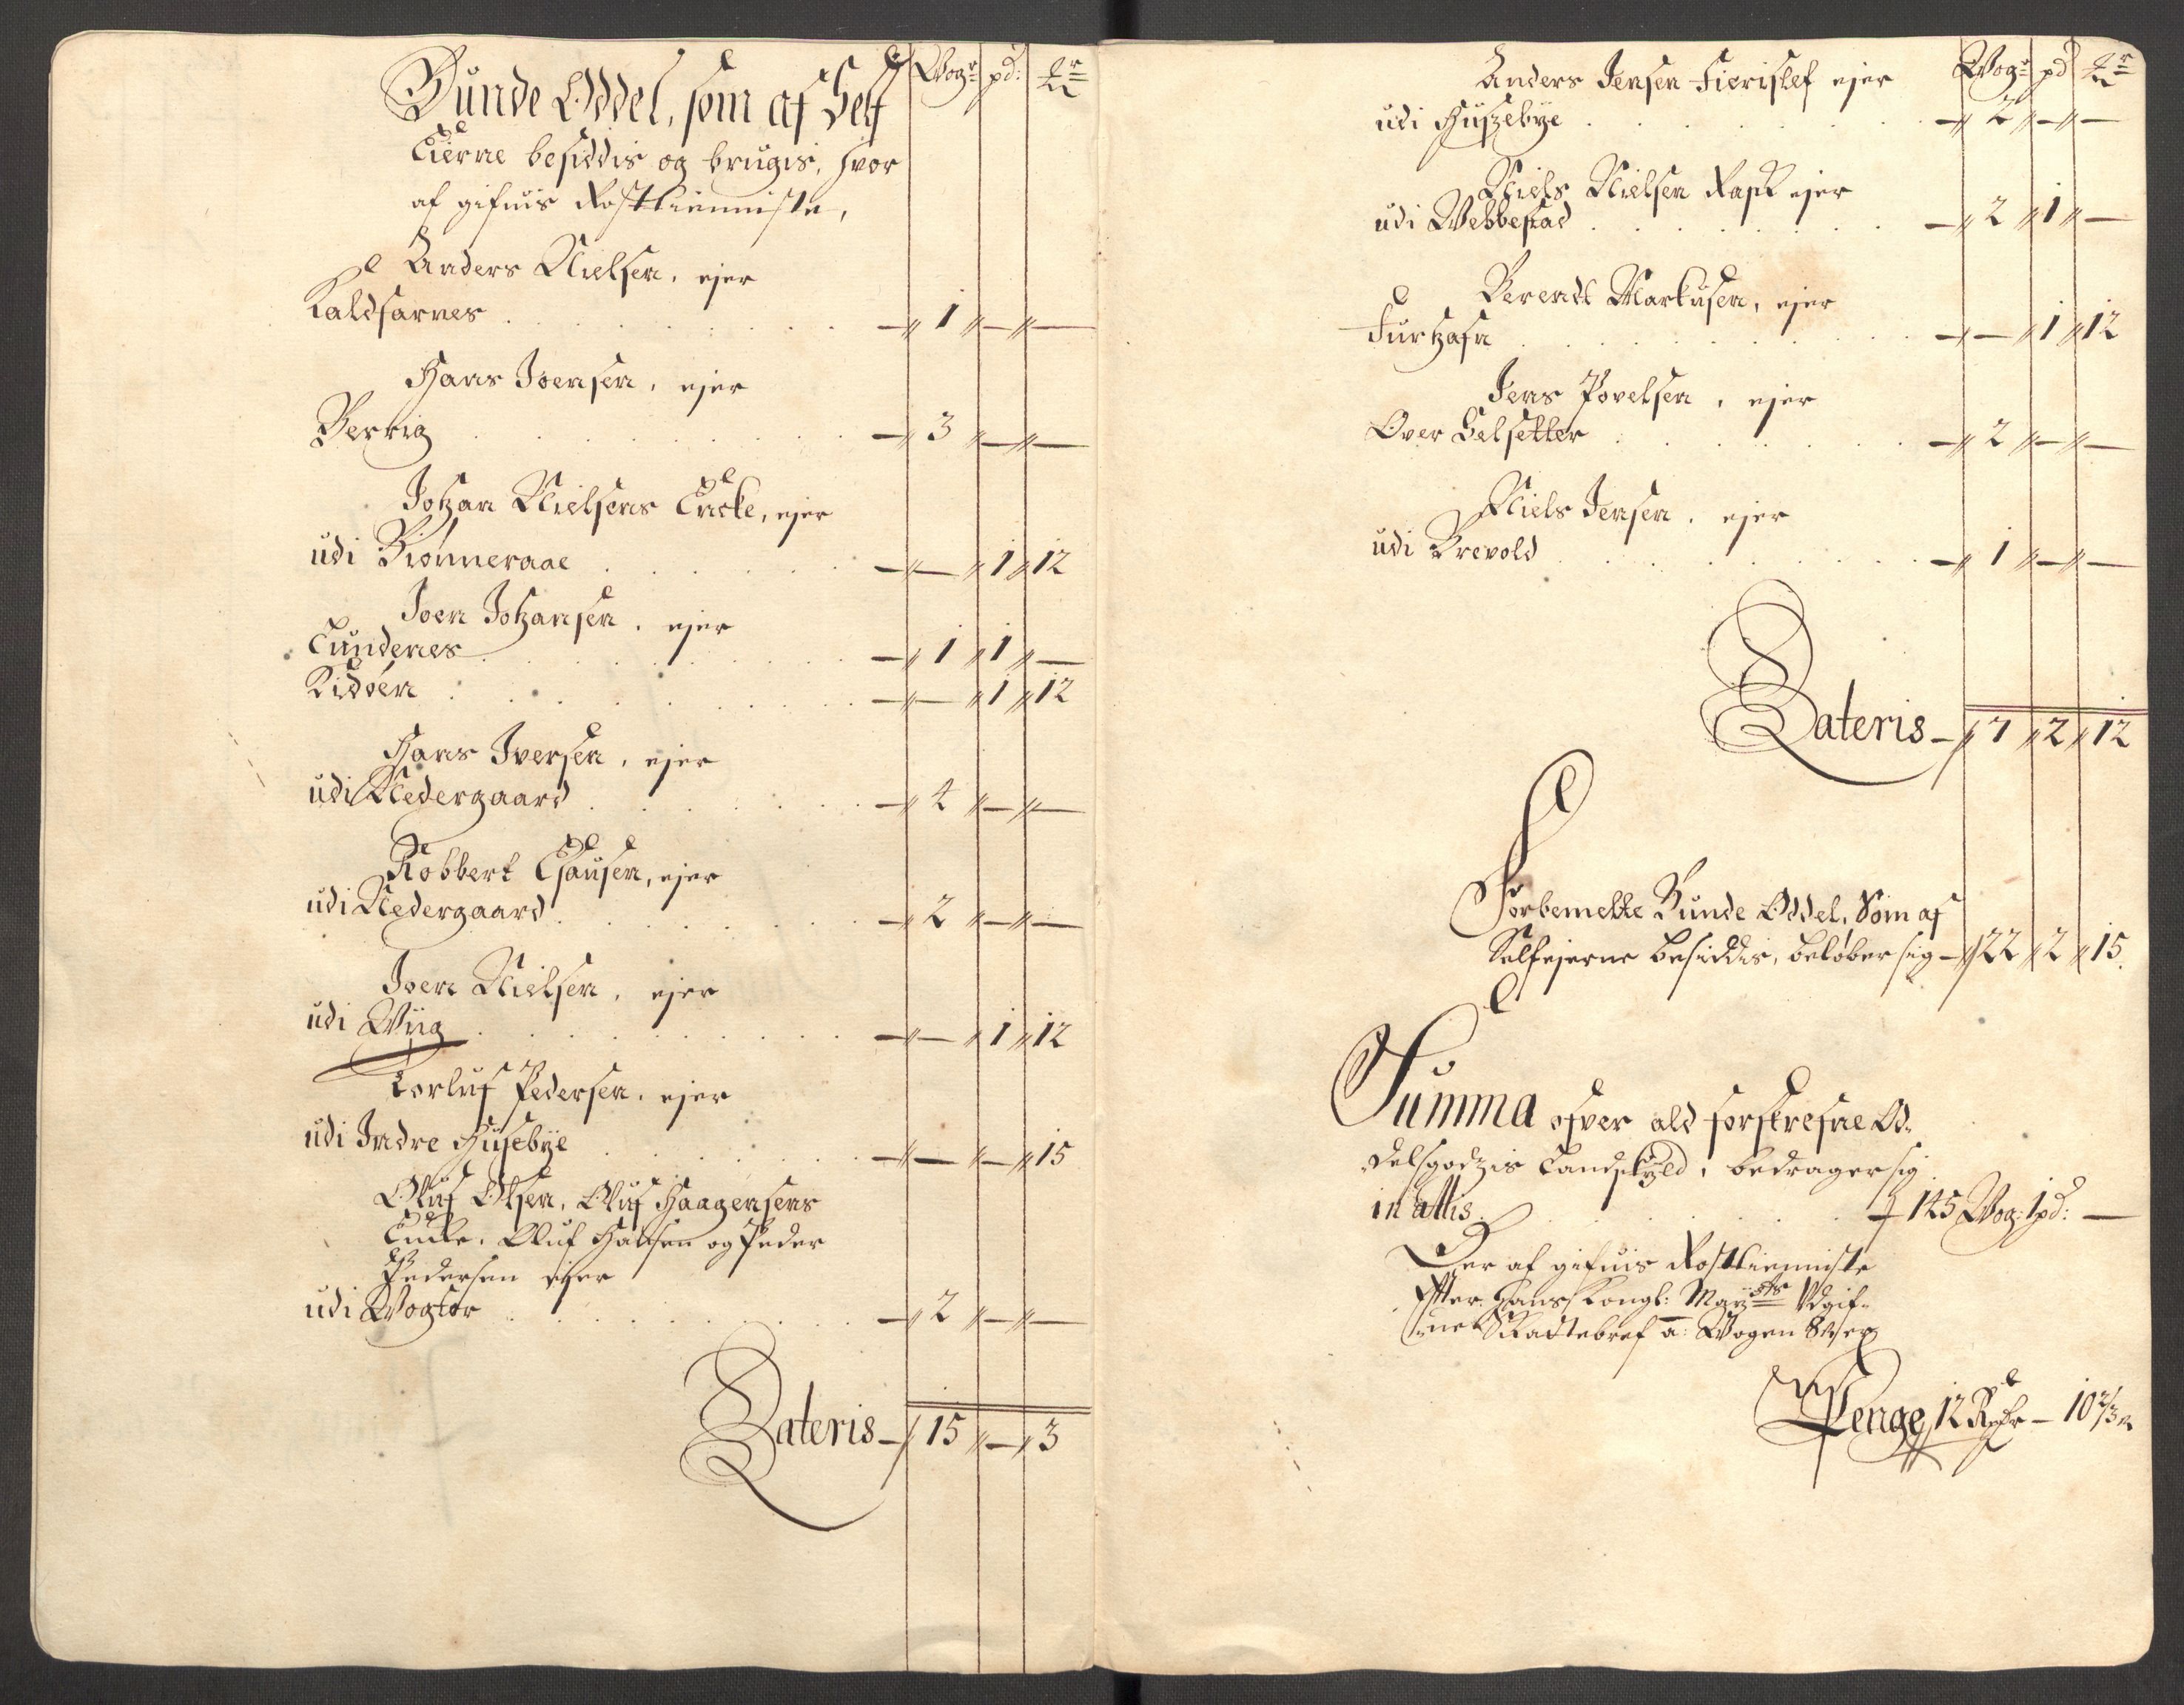 Bunde Oddel, som af Self Wogr pd: mkr
Eierne besiddis og brugis, hvor
af gifuis Rosttienniste,
Anders Nielsen, ejer
Kaldsarnes . . . — 1 — —
Hans Joensen, ejer
Berrig . . . — 3 — —
Johan Nielsens Encke, ejer
udi Biønneraae . . . — — 1 12
Joen Johansen, ejer
Tundenes . . . — 1 1 —
Ridøen . . . — — 1 12
Hans Iversen, ejer
udi Nedergaard . . . — 4 — —
Robbert Clausen, ejer
udi Nedergaard . . . — 2 — —
Joen Nielsen, ejer
udi Wiig . . . — — 1 12
Torluf Pedersen, ejer
udi Indre Husebye . . . — — — 15
Oluf Olsen, Oluf Haagensens
Encke, Oluf Hansen og Peder
Pedersen ejer
udi Wogtor . . . — 2 — —
Lateris — 15 — 3
Anders Jensen ejer Wogr pd mkr
udi Huszebye . . . — 2 — —
Niels Nielsen Rask ejer
udi Webbestad . . . — 2 1 —
Berendt Markusen, ejer
Furhafn . . . — — 1 12
Jens Povelsen, ejer
Over Selsetter . . . — 2 — —
Niels Jensen, ejer
udi Brevold . . . — 1 — —
Lateris — 7 2 12
Forbemelte Bunde Oddel, Som af
Selfejerne besiddis, beløber sig — 22 2 15
Summa ofver ald forskrefne Od-
delsgodzis Landskyld, bedrager sig
in alles . . . 145 Wog: 1 pd: —
Der af gifuis Rosttienniste
Efter Hans Kongl: Mayts Udgif-
ne Skattebref a: Wogen 8
Penge 12 Rdr — 10 2/3